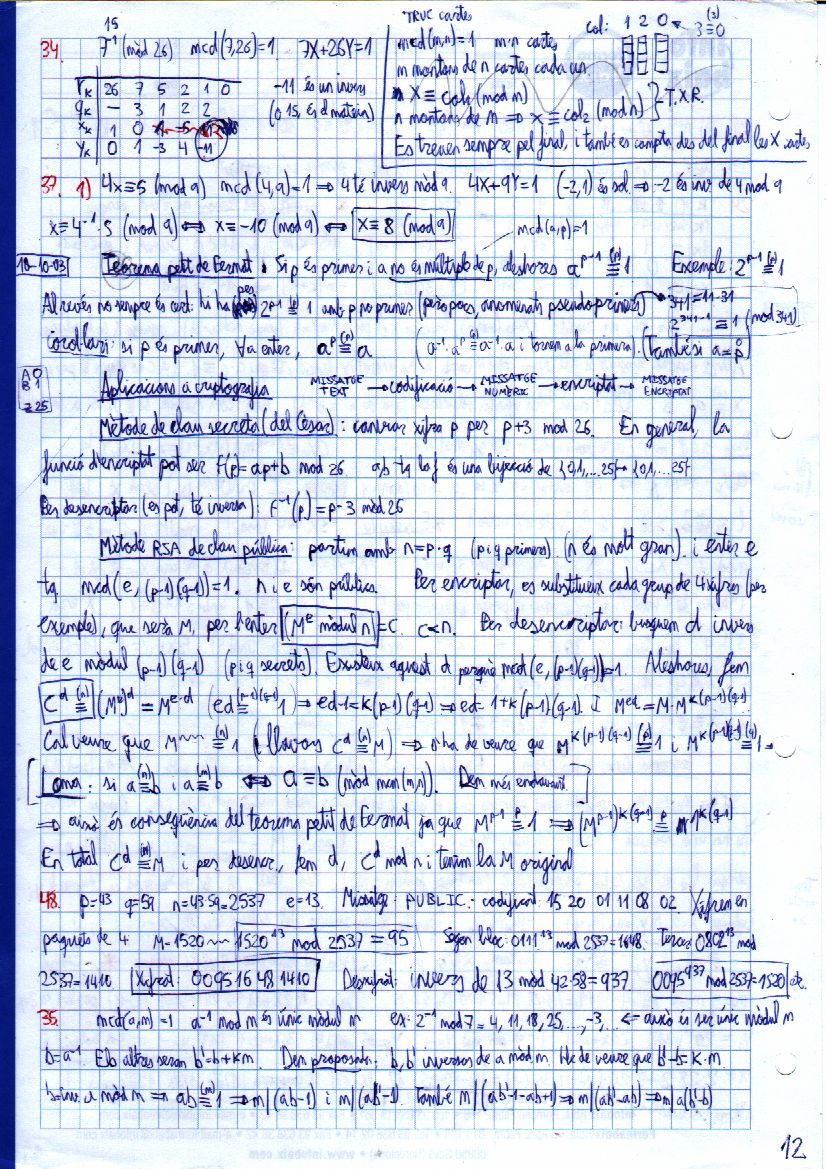 15
34. 7⁻¹ (mòd 26) mcd(7,26)=1 7X+26Y=1
rₖ | 26 7 5 2 1 0
qₖ | – 3 1 2 2
xₖ | 1 0
yₖ | 0 1 -3 4 -11
-11 és un invers
(o 15, és el mateix)
TRUC cartes
mcd(m,n)=1 m·n cartes
m montons de n cartes cada un.
X ≡ col₁ (mod m)
n montons de m ⇒ x ≡ col₂ (mod n) } T.X.R.
Es treuen sempre pel final, i també es compta des del final les X cartes
Col: 1 2 0 3≡0 (3)
37. 1) 4x≡5 (mod 9) mcd(4,9)=1 ⇒ 4 té invers mòd 9. 4X+9Y=1 (-2,1) és sol ⇒ -2 és inv. de 4 mod 9
x≡4⁻¹·5 (mod 9) ⇔ x≡-10 (mod 9) ⇔ x≡8 (mod 9)
mcd(a,p)=1
18-10-03 Teorema petit de Fermat: Si p és primer i a no és múltiple de p, aleshores aᵖ⁻¹ ≡ 1 (p) Exemple: 2ᵖ⁻¹ ≡ 1 (p)
Al revés no sempre és cert: hi ha 2ᵖ⁻¹ ≡ 1 amb p no primer (però pocs, anomenats pseudoprimers) → 341=11·31
2³⁴¹⁻¹ ≡ 1 (mod 341)
Corol·lari: si p és primer, ∀a enter, aᵖ ≡ a (p) (a⁻¹·aᵖ ≡ a⁻¹·a i tornem a la primera). (També si a=ṗ)
A 0
B 1
Z 25
Aplicacions a criptografia MISSATGE TEXT → codificació → MISSATGE NUMÈRIC → encriptat → MISSATGE ENCRIPTAT
Mètode de clau secreta (del Cèsar): canviar xifra p per p+3 mod 26. En general, la
funció d'encriptat pot ser f(p)=ap+b mod 26 a,b tq la f és una bijecció de {0,1,...25} → {0,1,...25}
Per desencriptar (es pot, té inversa): f⁻¹(p)=p-3 mòd 26
Mètode RSA de clau pública: partim amb n=p·q (p i q primers) (n és molt gran). i enter e
tq mcd(e,(p-1)(q-1))=1. n i e són públics. Per encriptar, es substitueix cada grup de 4 xifres (per
exemple), que serà M, per l'enter (Mᵉ mòdul n)=C. C<n. Per desencriptar: busquem d invers
de e mòdul (p-1)(q-1) (p i q secrets). Existeix aquest d perquè mcd(e,(p-1)(q-1))=1. Aleshores, fem
Cᵈ ≡ (n) (Mᵉ)ᵈ = Mᵉ·ᵈ (ed ≡ 1 (p-1)(q-1)) ⇒ ed-1=k(p-1)(q-1) ⇒ ed=1+k(p-1)(q-1). I Mᵉᵈ=M·Mᵏ⁽ᵖ⁻¹⁾⁽q⁻¹⁾
Cal veure que M ≡ 1 (n) (llavors Cᵈ ≡ M (n)) ⇒ s'ha de veure que Mᵏ⁽ᵖ⁻¹⁾⁽q⁻¹⁾ ≡ 1 (p) i Mᵏ⁽ᵖ⁻¹⁾⁽q⁻¹⁾ ≡ 1 (q)
Lema: si a ≡ b (n) i a ≡ b (m) ⇔ a ≡ b (mòd mcm(m,n)). Dem més endavant.
⇒ això és conseqüència del teorema petit de Fermat ja que Mᵖ⁻¹ ≡ 1 (p) ⇒ (Mᵖ⁻¹)ᵏ⁽q⁻¹⁾ ≡ 1ᵏ⁽q⁻¹⁾ (p)
En total Cᵈ ≡ M (n) i per desencr., fem d, Cᵈ mod n i tenim la M original
48. p=43 q=59 n=43·59=2537 e=13. Missatge: PUBLIC.- codificant: 15 20 01 11 08 02. Xifrem en
paquets de 4 M=1520 1520¹³ mod 2537=95 Segon bloc: 0111¹³ mod 2537=1648. Tercer: 0802¹³ mod
2537=1410 Xifrat: 0095 1648 1410 Desxifrat: invers de 13 mòd 42·58=937. 0095⁹³⁷ mod 2537=1520, etc.
35. mcd(a,m)=1 a⁻¹ mod m és únic mòdul m ex: 2⁻¹ mod 7=4, 11, 18, 25, ..., -3, ... ⇐ això és ser únic mòdul m
b=a⁻¹ Els altres seran b'=b+km. Dem proposició: b, b' inversos de a mòd m. He de veure que b'-b=k·m.
b=inv. a mòd m ⇒ ab ≡ 1 (m) ⇒ m|(ab-1) i m|(ab'-1). També m|(ab'-1-ab+1) ⇒ m|(ab'-ab) ⇒ m|a(b'-b)
12
www.infobaix.com